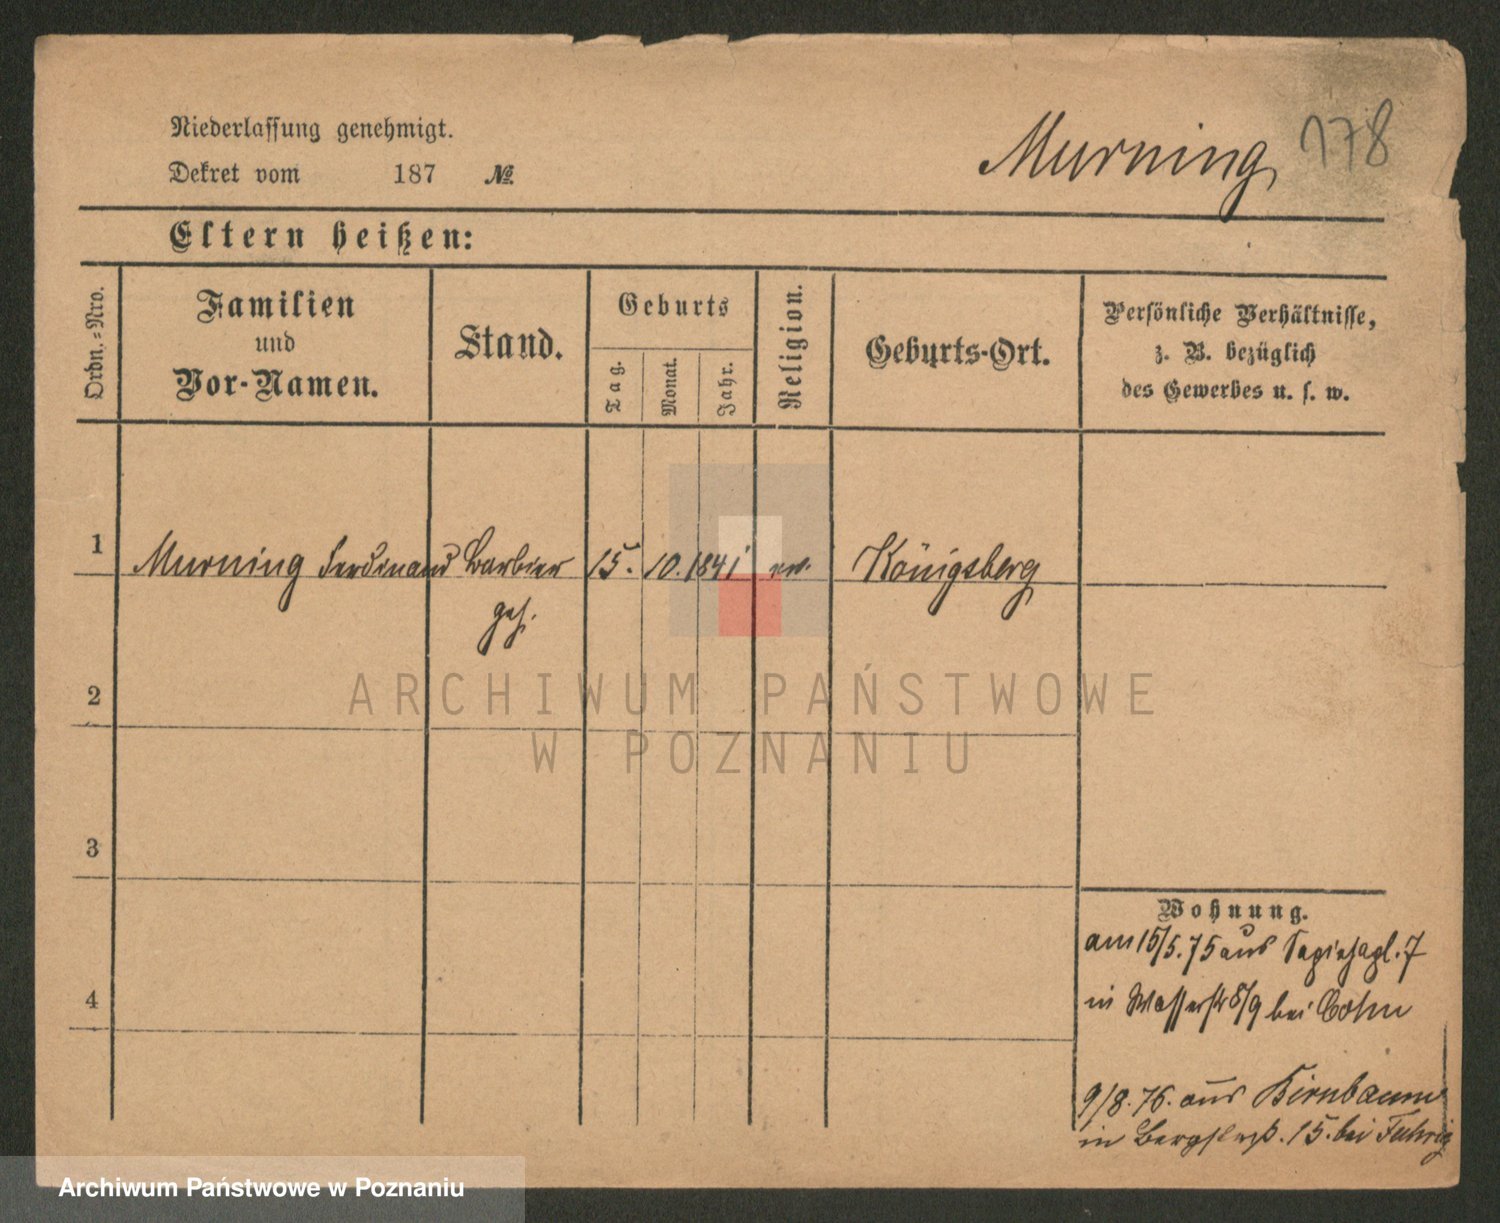 Niederlassung genehmigt.
Dekret vom 187 №
Murning 178
Eltern heißen:
Ordn.-Nro.
Familien
und
Vor-Namen.
Stand.
Geburts
Tag.
Monat.
Jahr.
Religion.
Geburts-Ort.
Persönliche Verhältnisse,
z. B. bezüglich
des Gewerbes u. s. w.
1 Murning Ferdinand Barbier 15. 10. 1841 ev. Königsberg
geh.
2
3
4
Wohnung.
am 15/5. 75 aus 7
in Wasserstr 8/9 bei Cohn
9/8. 76. aus Birnbaum
in Bergstraß. 15. bei Fuhrig
ARCHIWUM PAŃSTWOWE
W POZNANIU
Archiwum Państwowe w Poznaniu